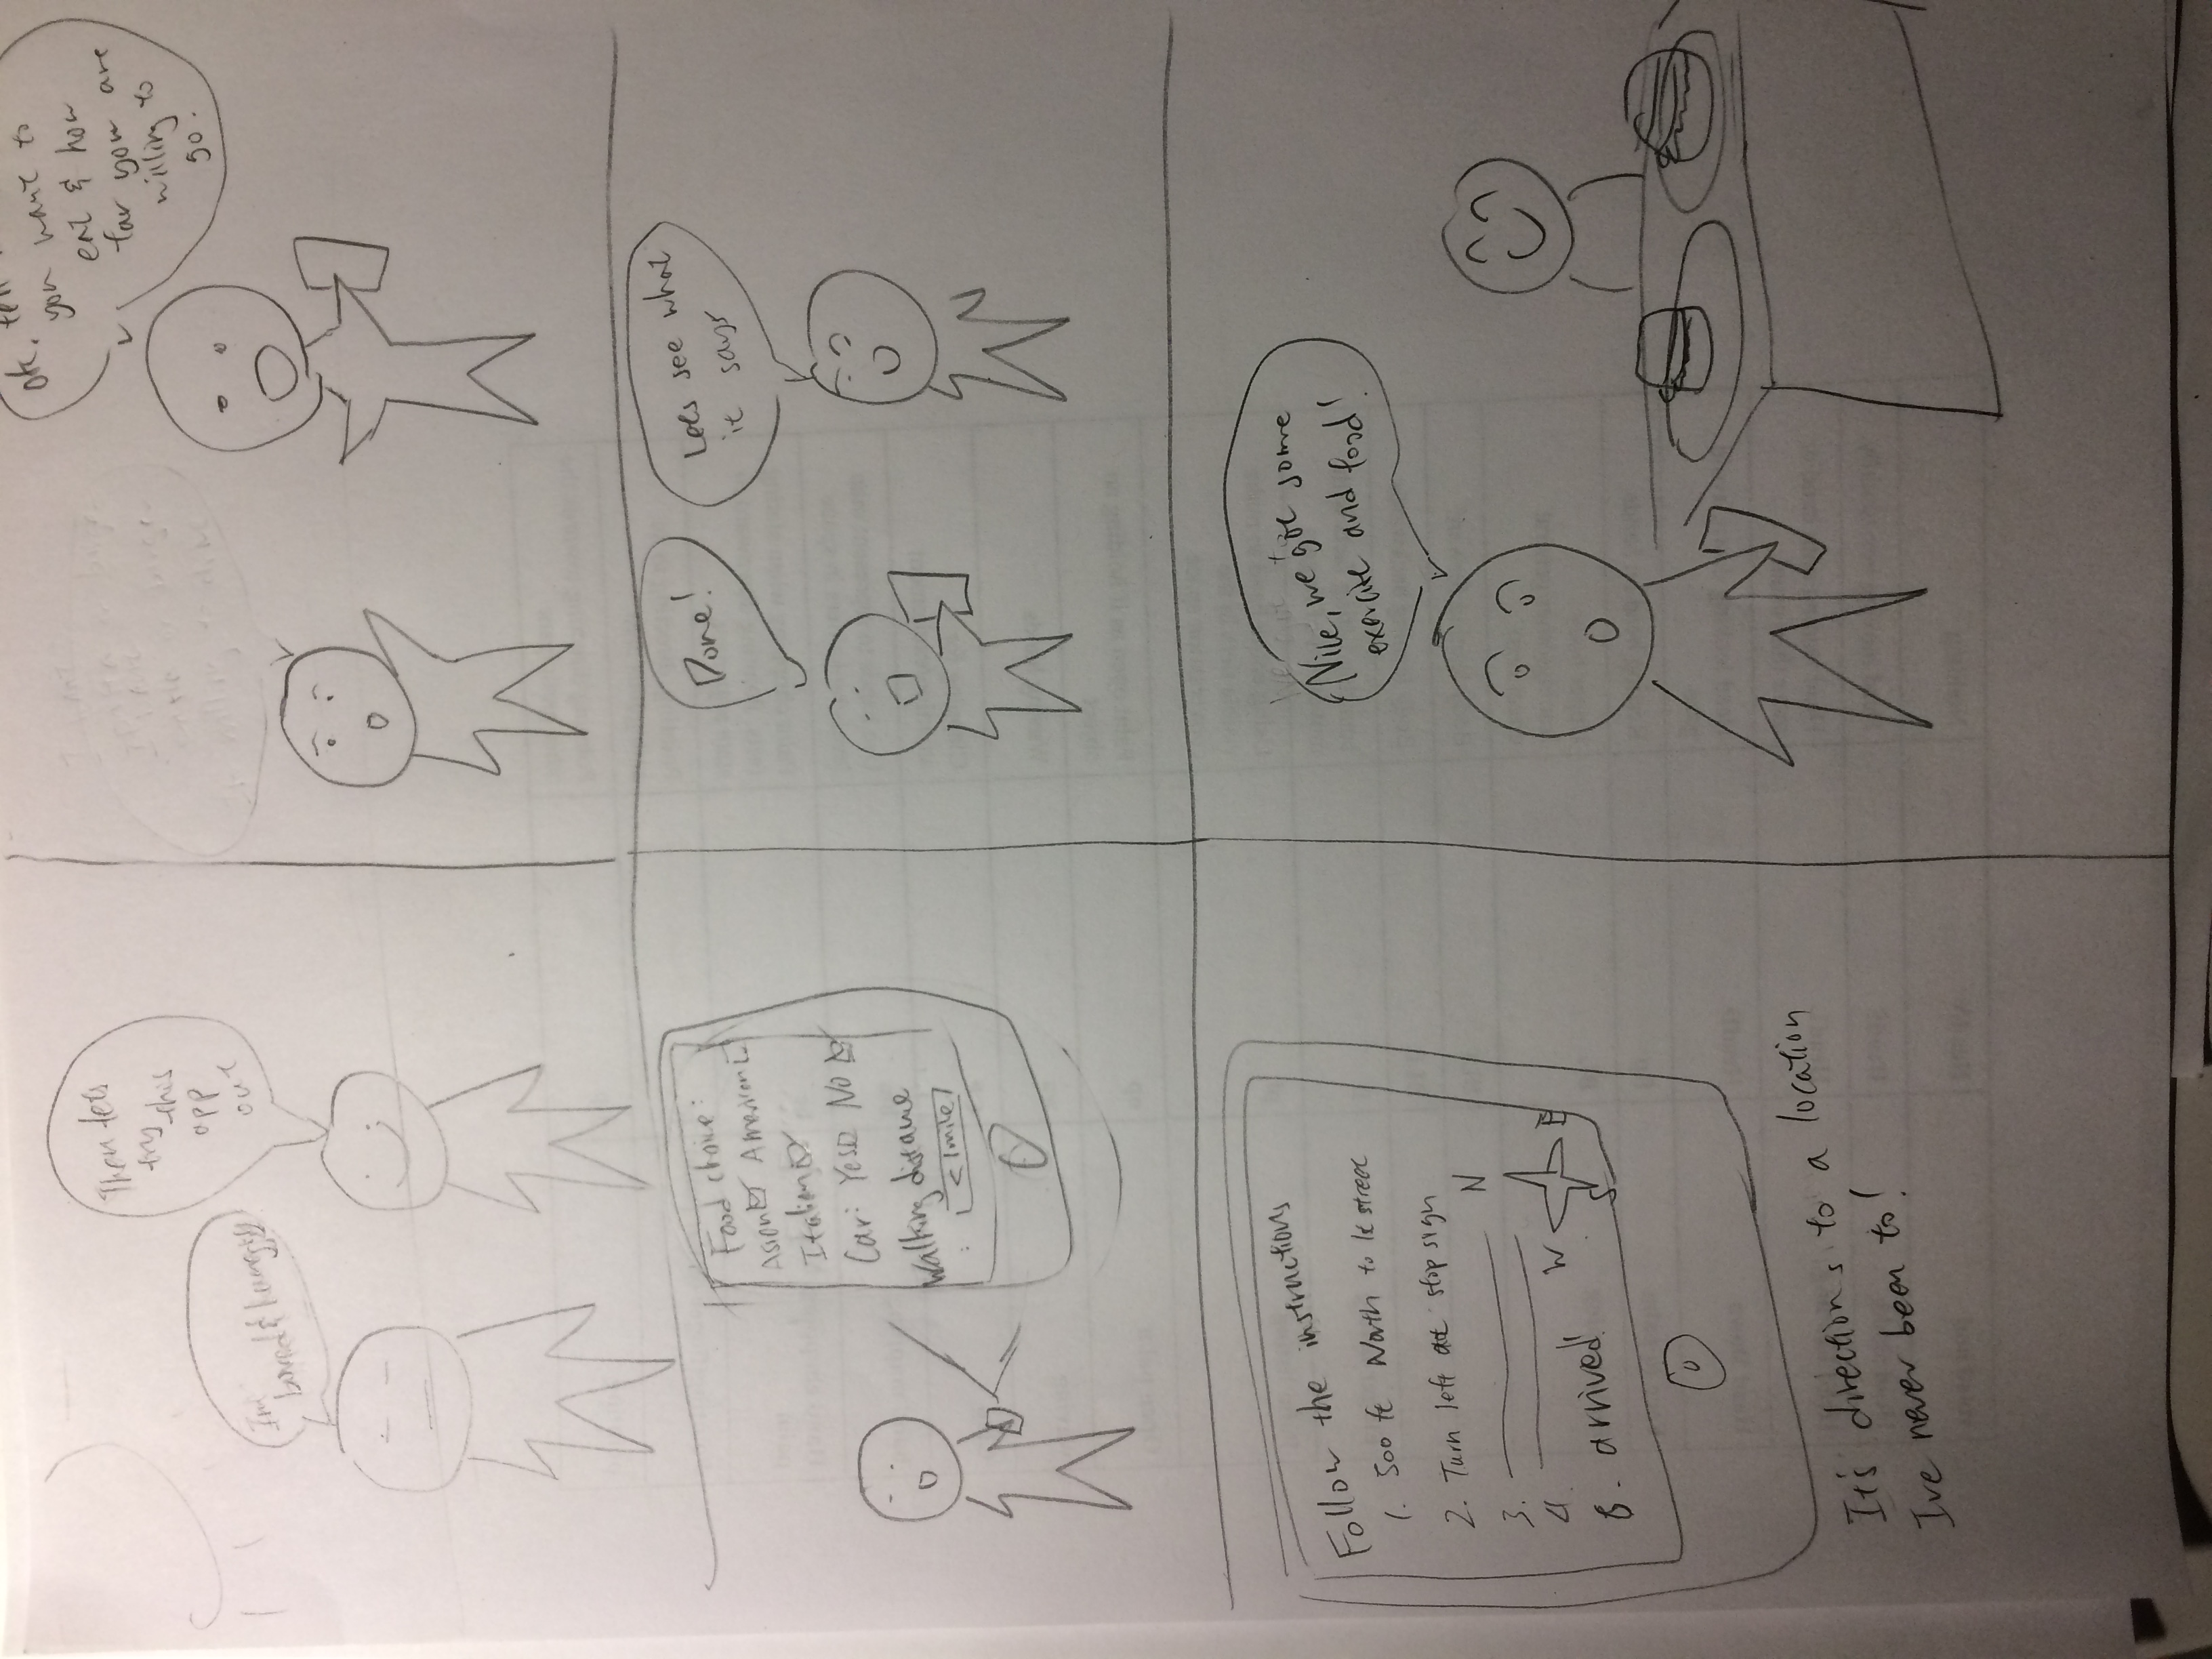 I'm
bored & hungry
Then lets
try this
app
out
ok. tell
you want to
eat & how
far you are
willing to
go.
Food choice:
Asian American
Italian
Car: Yes No
Walking distance
: <1mile
Done!
Lets see what
it says
Follow the instructions
1. 500 ft North to 1st street
2. Turn left at stop sign
3.
4.
5. arrived!
N
W E
S
It's directions to a location
I've never been to!
Nice, we got some
exercise and food!